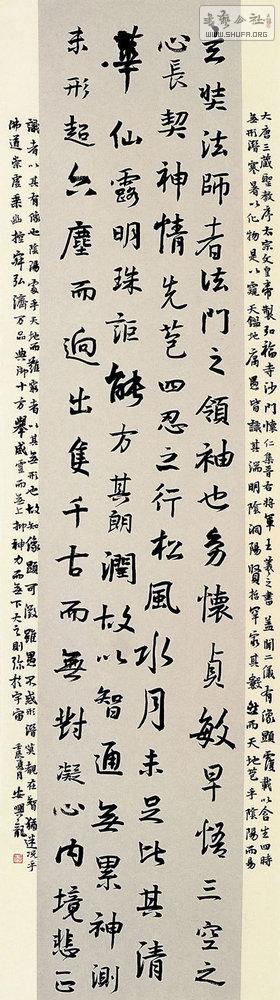 书艺公社
WWW.SHUFA.ORG
大唐三藏聖教序太宗文皇帝製弘福寺沙門懷仁集晉右將軍王羲之書蓋聞二儀有像顯覆載以含生四時
無形潛寒暑以化物是以窺天鑑地庸愚皆識其端明陰洞陽賢哲罕窮其數然而天地苞乎陰陽而易
玄奘法師者法門之領袖也幼懷貞敏早悟三空之
心長契神情先苞四忍之行松風水月未足比其清
華仙露明珠詎能方其朗潤故以智通無累神測
未形超六塵而迥出隻千古而無對凝心內境悲正
識者以其有像也陰陽處乎天地而難窮者以其無形也故知像顯可徵雖愚不惑形潛莫覩在智猶迷況乎
佛道崇虛乘幽控寂弘濟萬品典御十方舉威靈而無上抑神力而無下大之則彌於宇宙 夏月安興龍